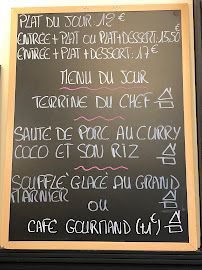 PLAT DU JOUR 12€
ENTREE + PLAT OU PLAT + DESSERT : 15,50
ENTREE + PLAT + DESSERT : 17€
MENU DU JOUR
TERRINE DU CHEF
SAUTE DE PORC AU CURRY
COCO ET SON RIZ
SOUFFLE GLACÉ AU GRAND
MARNIER
OU
CAFE GOURMAND (+1€)